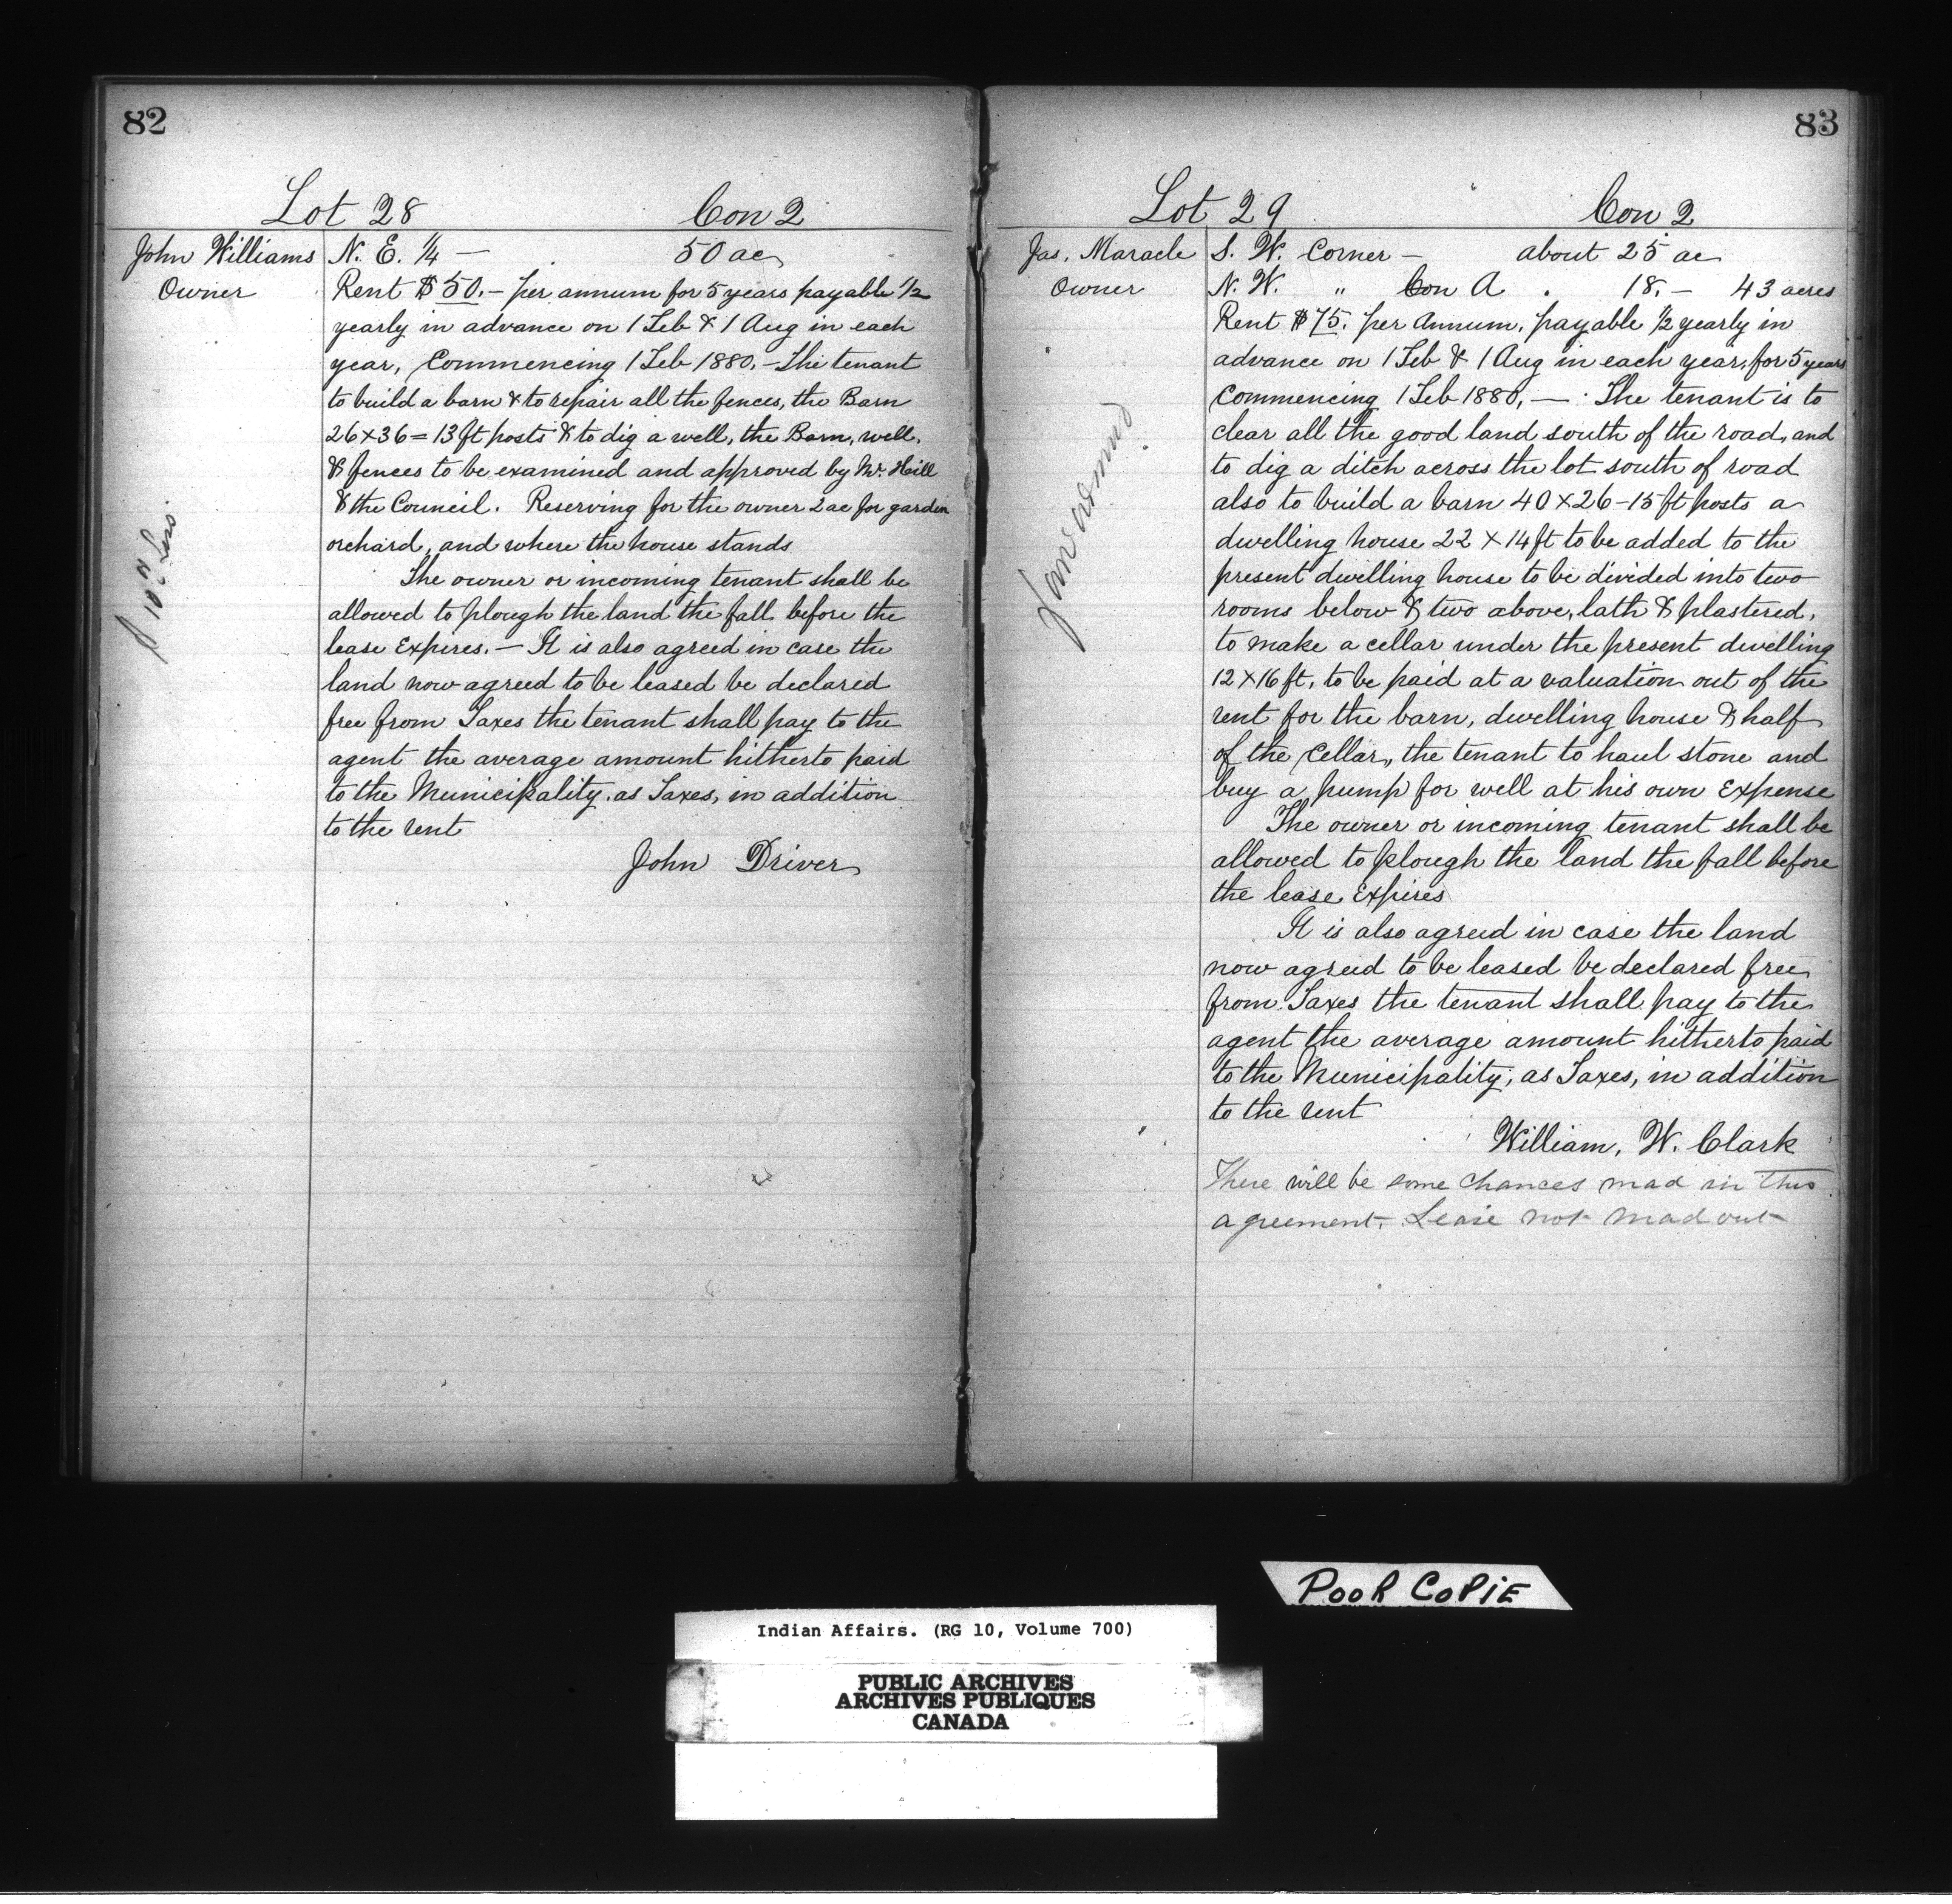 82
Lot 28 Con 2
John Williams
Owner
N. E. 1/4 — 50 ac
Rent $50.— per annum for 5 years payable 1/2
yearly in advance on 1 Feb & 1 Aug in each
year, Commencing 1 Feb 1880, — The tenant
to build a barn & to repair all the fences, the Barn
26 x 36 = 13 ft posts & to dig a well, the Barn, well,
& fences to be examined and approved by Mr. Hill
& the Council. Reserving for the owner 2 ac for garden
orchard, and where the house stands
The owner or incoming tenant shall be
allowed to plough the land the fall before the
lease Expires. — It is also agreed in case the
land now agreed to be leased be declared
free from Taxes the tenant shall pay to the
agent the average amount hitherto paid
to the Municipality, as Taxes, in addition
to the rent
John Driver
83
Lot 29 Con 2
Jas. Maracle
Owner
S. W. Corner — about 25 ac
N. W. " Con A . 18. — 43 acres
Rent $75. per Annum, payable 1/2 yearly in
advance on 1 Feb & 1 Aug in each year, for 5 years
Commencing 1 Feb 1880, — The tenant is to
clear all the good land south of the road, and
to dig a ditch across the lot south of road
also to build a barn 40 x 26 - 15 ft posts a
dwelling house 22 x 14 ft to be added to the
present dwelling house to be divided into two
rooms below & two above, lath & plastered,
to make a cellar under the present dwelling
12 x 16 ft, to be paid at a valuation out of the
rent for the barn, dwelling house & half
of the Cellar, the tenant to haul stone and
buy a pump for well at his own Expense
The owner or incoming tenant shall be
allowed to plough the land the fall before
the lease Expires
It is also agreed in case the land
now agreed to be leased be declared free
from Taxes the tenant shall pay to the
agent the average amount hitherto paid
to the Municipality, as Taxes, in addition
to the rent
William, W. Clark
There will be some chances mad in this
agreement. Lease not mad out
POOR COPIE
Indian Affairs. (RG 10, Volume 700)
PUBLIC ARCHIVES
ARCHIVES PUBLIQUES
CANADA